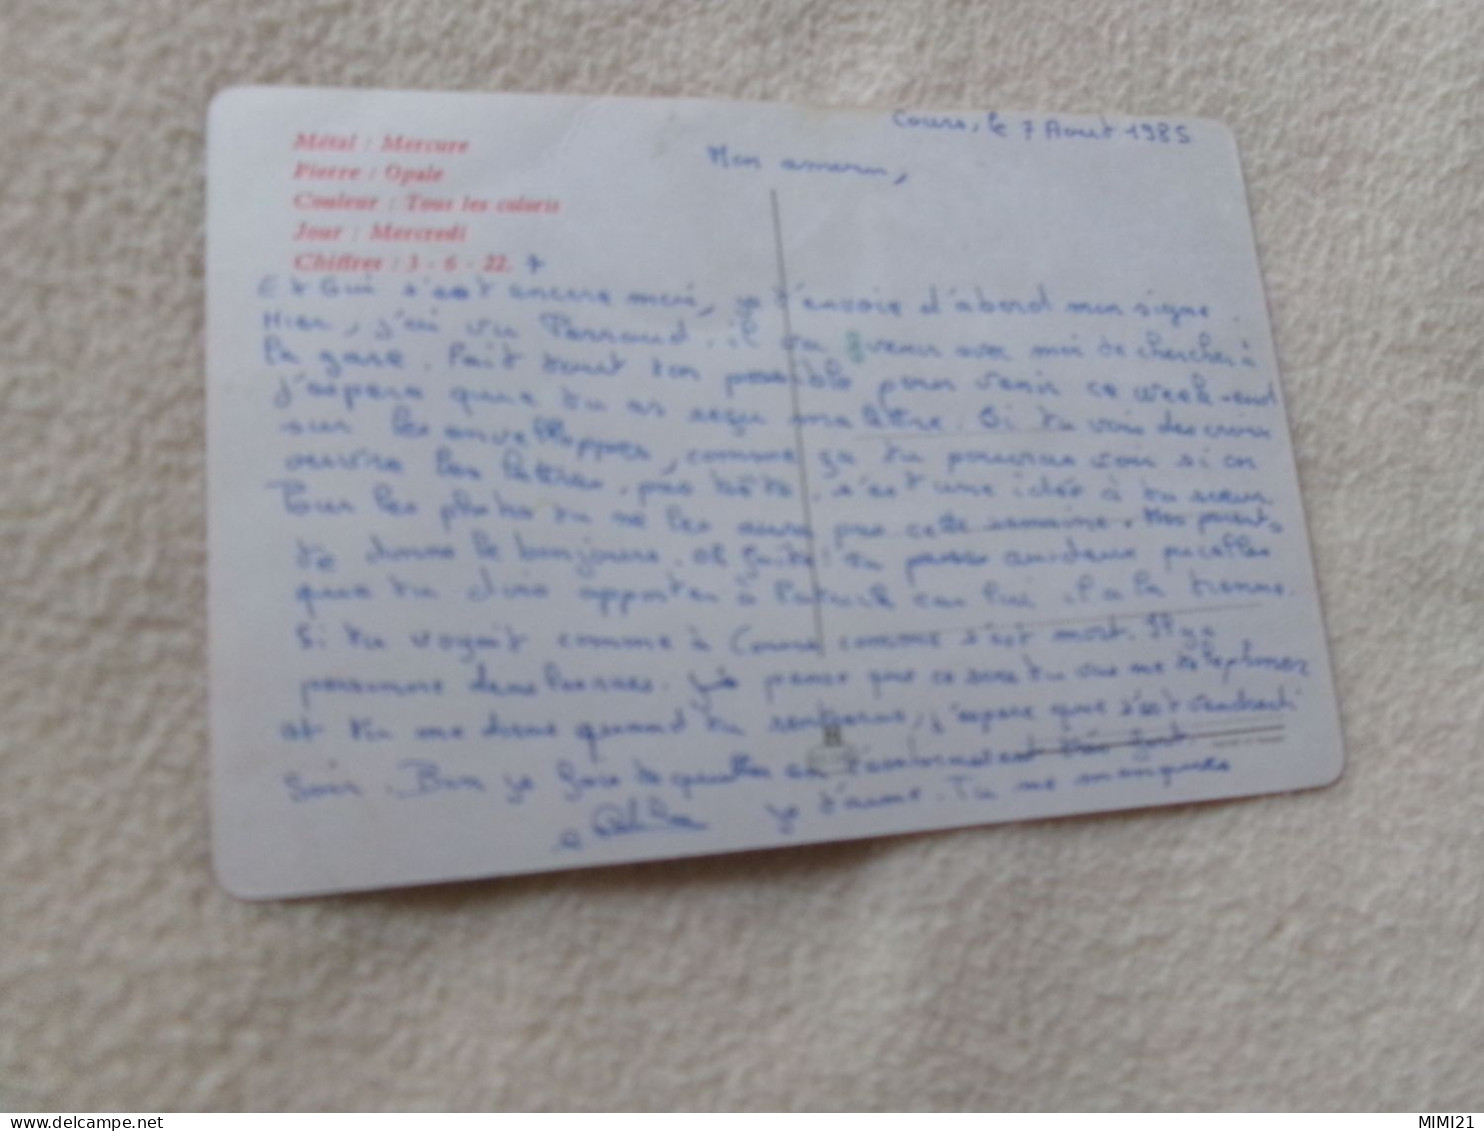 Cours, le 7 Aout 1985
Mon amour,
Métal : Mercure
Pierre : Opale
Couleur : Tous les coloris
Jour : Mercredi
Chiffres : 3 - 6 - 22. 7
Et oui c'est encore moi, je t'envoie d'abord mon signe.
Hier, j'ai vu Perraud. il va venir avec moi te chercher à
la gare. Fait tout ton possible pour venir ce week-end
j'espère que tu as reçu ma lettre. Si tu vois des croix
sur les enveloppes, comme ça tu pourras voir si on
ouvre les lettres. pas bête. c'est une idée à ta sœur.
Pour les photos tu ne les auras pas cette semaine. Mes parents
te donne le bonjour. et
que tu dois apporter à Patrick car lui il a la tienne.
Si tu voyait comme à Cours comme c'est mort. Il y a
personne dans les rues. Je pense que ce soir tu vas me téléphoner
et tu me diras quand tu rentreras, j'espère que c'est vendredi
soir. Bon je vais te quitter en t'embrassant très fort.
je t'aime. Tu me manques